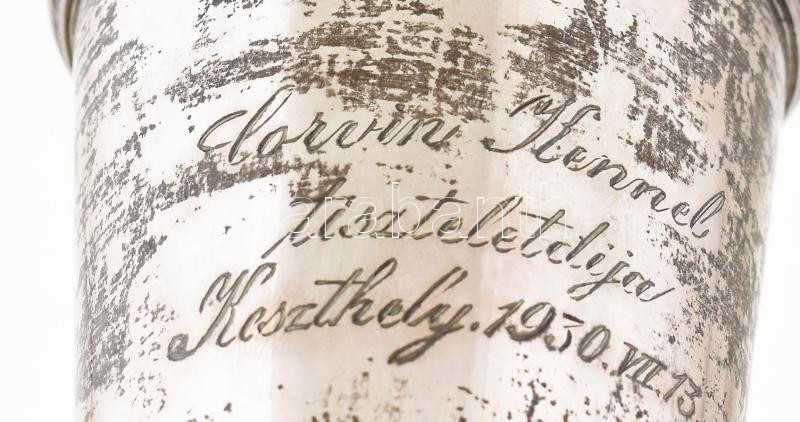 Corvin Kennel
tiszteletdija
Keszthely. 1930. VII. 13
arabanth